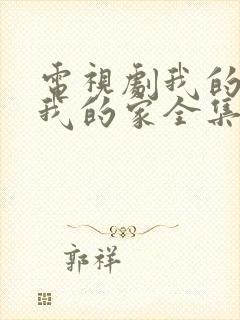 電視劇我的
我的家全集
郭祥